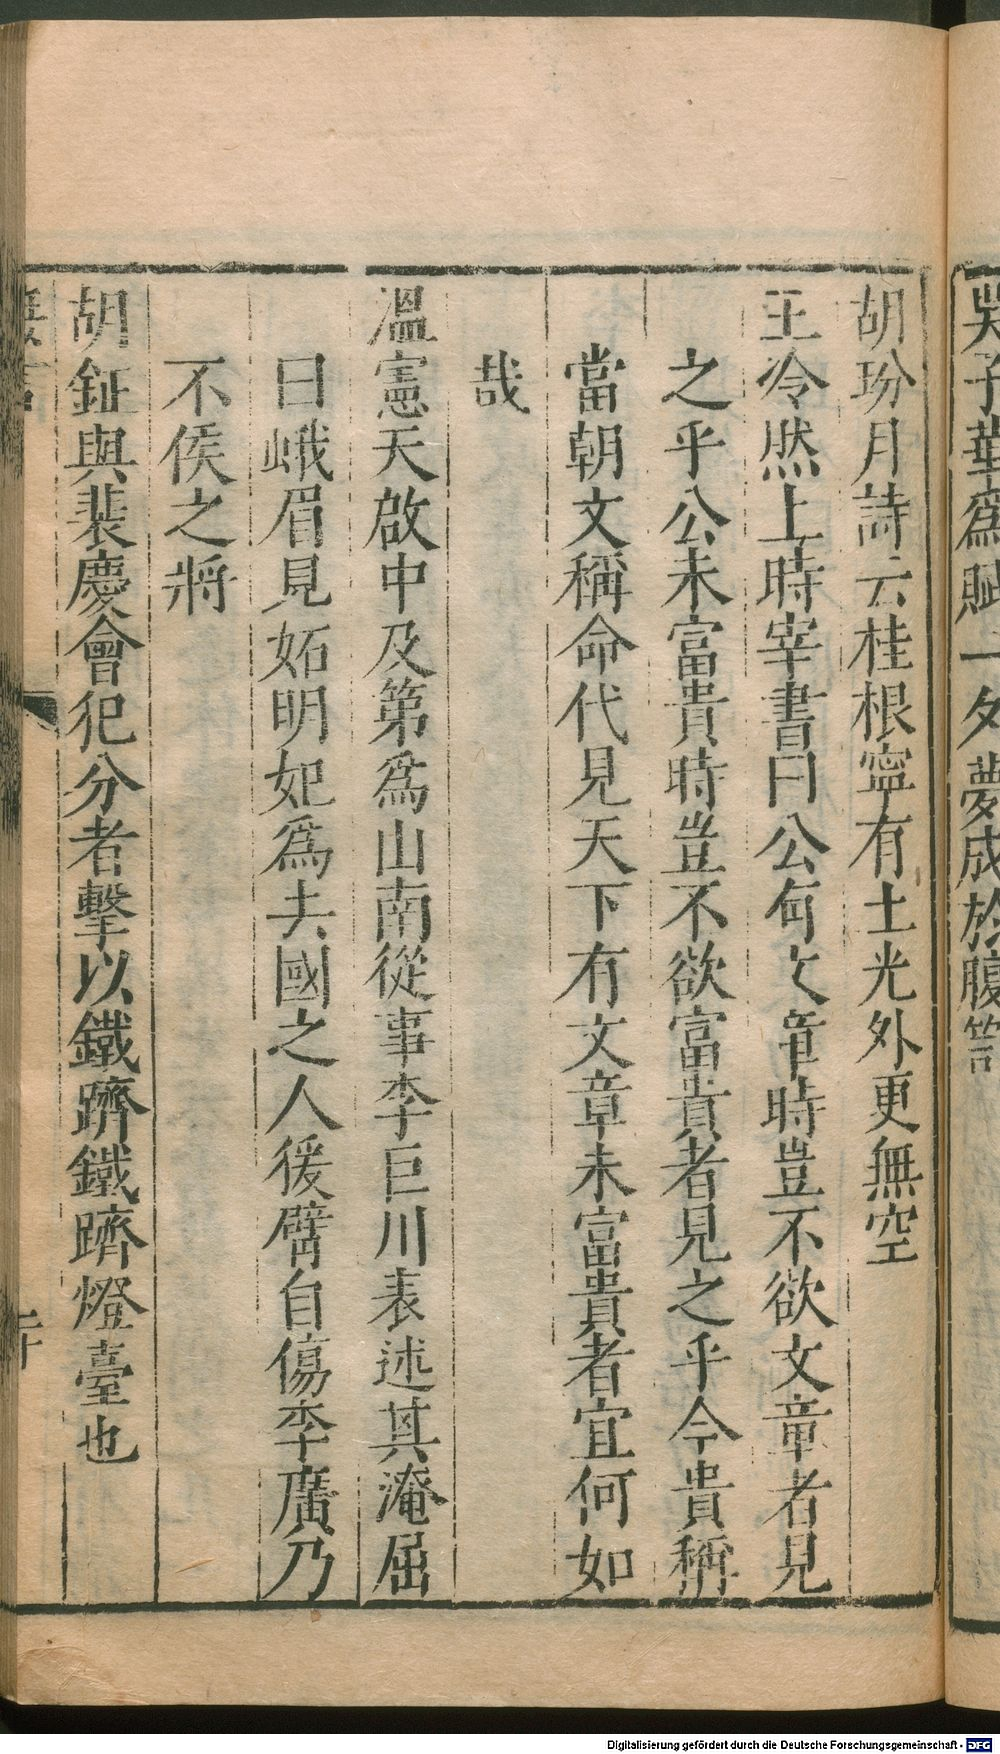 吳子華爲賦一夕夢成於腹笥
胡玢月詩云桂根寧有土光外更無空
王冷然上時宰書曰公有文章時豈不欲文章者見
之乎公未富貴時豈不欲富貴者見之乎今貴稱
當朝文稱命代見天下有文章未富貴者宜何如
哉
溫憲天啟中及第爲山南從事李巨川表述其淹屈
曰峨眉見妬明妃爲去國之人猨臂自傷李廣乃
不侯之將
胡鉦與裴慶會犯分者擊以鐵躋鐵躋燈臺也
Digitalisierung gefördert durch die Deutsche Forschungsgemeinschaft - DFG